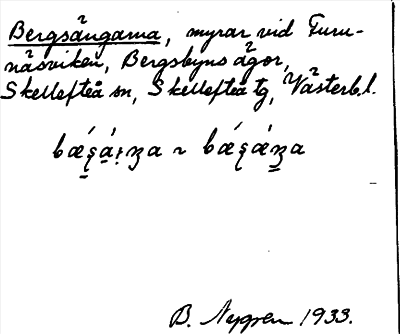 Bergsängarna, myrar vid Furu-
näsviken, Bergsbyns ägor,
Skellefteå sn, Skellefteå tg, Västerb.l.
B. Nygren 1933.